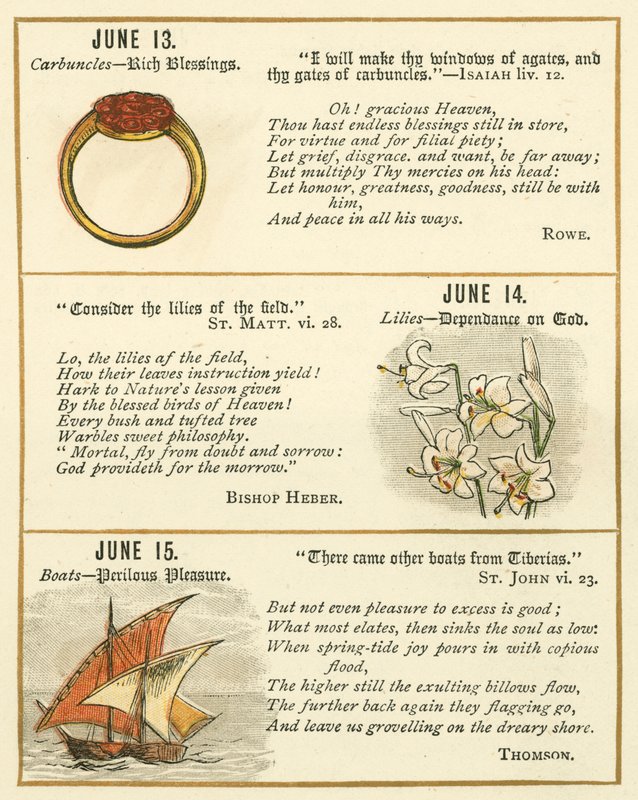 JUNE 13.
Carbuncles—Rich Blessings.
"I will make thy windows of agates, and
thy gates of carbuncles."—ISAIAH liv. 12.
Oh! gracious Heaven,
Thou hast endless blessings still in store,
For virtue and for filial piety;
Let grief, disgrace. and want, be far away;
But multiply Thy mercies on his head:
Let honour, greatness, goodness, still be with
him,
And peace in all his ways.
ROWE.
JUNE 14.
Lilies—Dependance on God.
"Consider the lilies of the field."
ST. MATT. vi. 28.
Lo, the lilies af the field,
How their leaves instruction yield!
Hark to Nature's lesson given
By the blessed birds of Heaven!
Every bush and tufted tree
Warbles sweet philosophy.
"Mortal, fly from doubt and sorrow:
God provideth for the morrow."
BISHOP HEBER.
JUNE 15.
Boats—Perilous Pleasure.
"There came other boats from Tiberias."
ST. JOHN vi. 23.
But not even pleasure to excess is good;
What most elates, then sinks the soul as low:
When spring-tide joy pours in with copious
flood,
The higher still the exulting billows flow,
The further back again they flagging go,
And leave us grovelling on the dreary shore.
THOMSON.